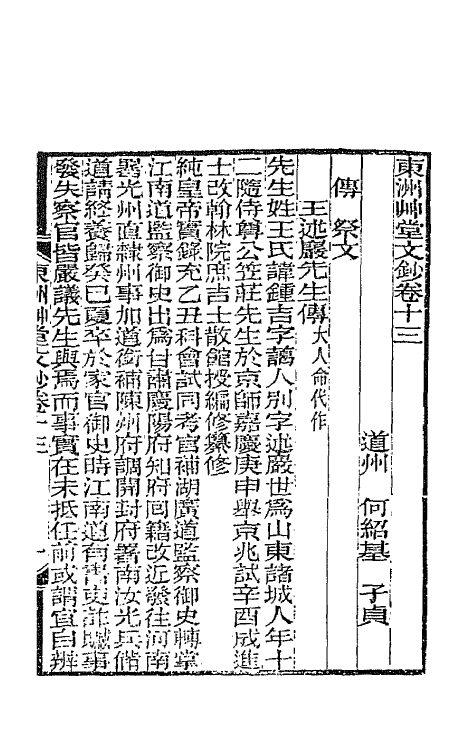 東洲艸堂文鈔卷十三
道州　何紹基　子貞
傳　祭文
王述巖先生傳大人命代作
先生姓王氏諱鍾吉字藹人別字述巖世爲山東諸城人年十
二隨侍尊公笠莊先生於京師嘉慶庚申舉京兆試辛酉成進
士改翰林院庶吉士散館授編修纂修
純皇帝實錄充乙丑科會試同考官補湖廣道監察御史轉掌
江南道監察御史出爲甘肅慶陽府知府回籍改近發往河南
署光州直隸州事加道銜補陳州府調開封府署南汝光兵備
道請終養歸癸巳夏卒於家官御史時江南道有書吏詐贓事
發失察官皆嚴議先生與焉而事實在未抵任前或謂宜自辨
東洲艸堂文鈔卷十三
一